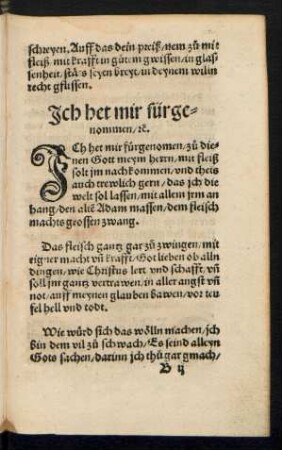 schreyen. Auff das dein preiß/nem zů mit
fleiß/mit krafft in gůtem gwissen/in glas
senheit/stäts seyen breyt/in deynem willn
recht gflissen.
Jch het mir fürge-
nommen/ꝛc.
JCh het mir fürgenomen/zů die-
nen Gott meym herrn/mit fleiß
solt jm nachkommen/vnd thets
auch trewlich gern/das jch die
welt sol lassen/mit allem jrm an
hang/den altē Adam massen/dem fleisch
machts grossen zwang.
Das fleisch gantz gar zů zwingen/mit
eigner macht vñ krafft/Got lieben ob alln
dingen/wie Christus lert vnd schafft/vñ
söll jm gantz vertrawen/in aller angst vñ
not/auff meynen glauben bawen/vor teu
fel hell vnd todt.
Wie würd sich das wölln machen/jch
bin dem vil zů schwach/Es seind alleyn
Gots sachen/darinn jch thů gar gmach/
B ij